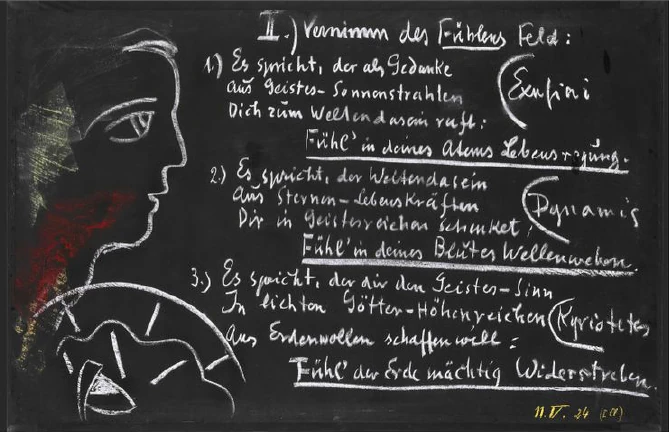 II.) Vernimm des Fühlens Feld:
1.) Es spricht, der als Gedanke
Aus Geistes-Sonnenstrahlen
Dich zum Weltendasein ruft:
Exusiai
Fühl' in deines Atems Lebensregung.
2.) Es spricht, der Weltendasein
Aus Sternen-Lebenskräften
Dir in Geistesreichen schenket:
Dynamis
Fühl' in deines Blutes Wellenweben.
3.) Es spricht, der dir den Geistes-Sinn
In lichten Götter-Höhenreichen
Aus Erdenwollen schaffen will:
Kyriotetes
Fühl' der Erde mächtig Widerstreben.
11. IV. 24